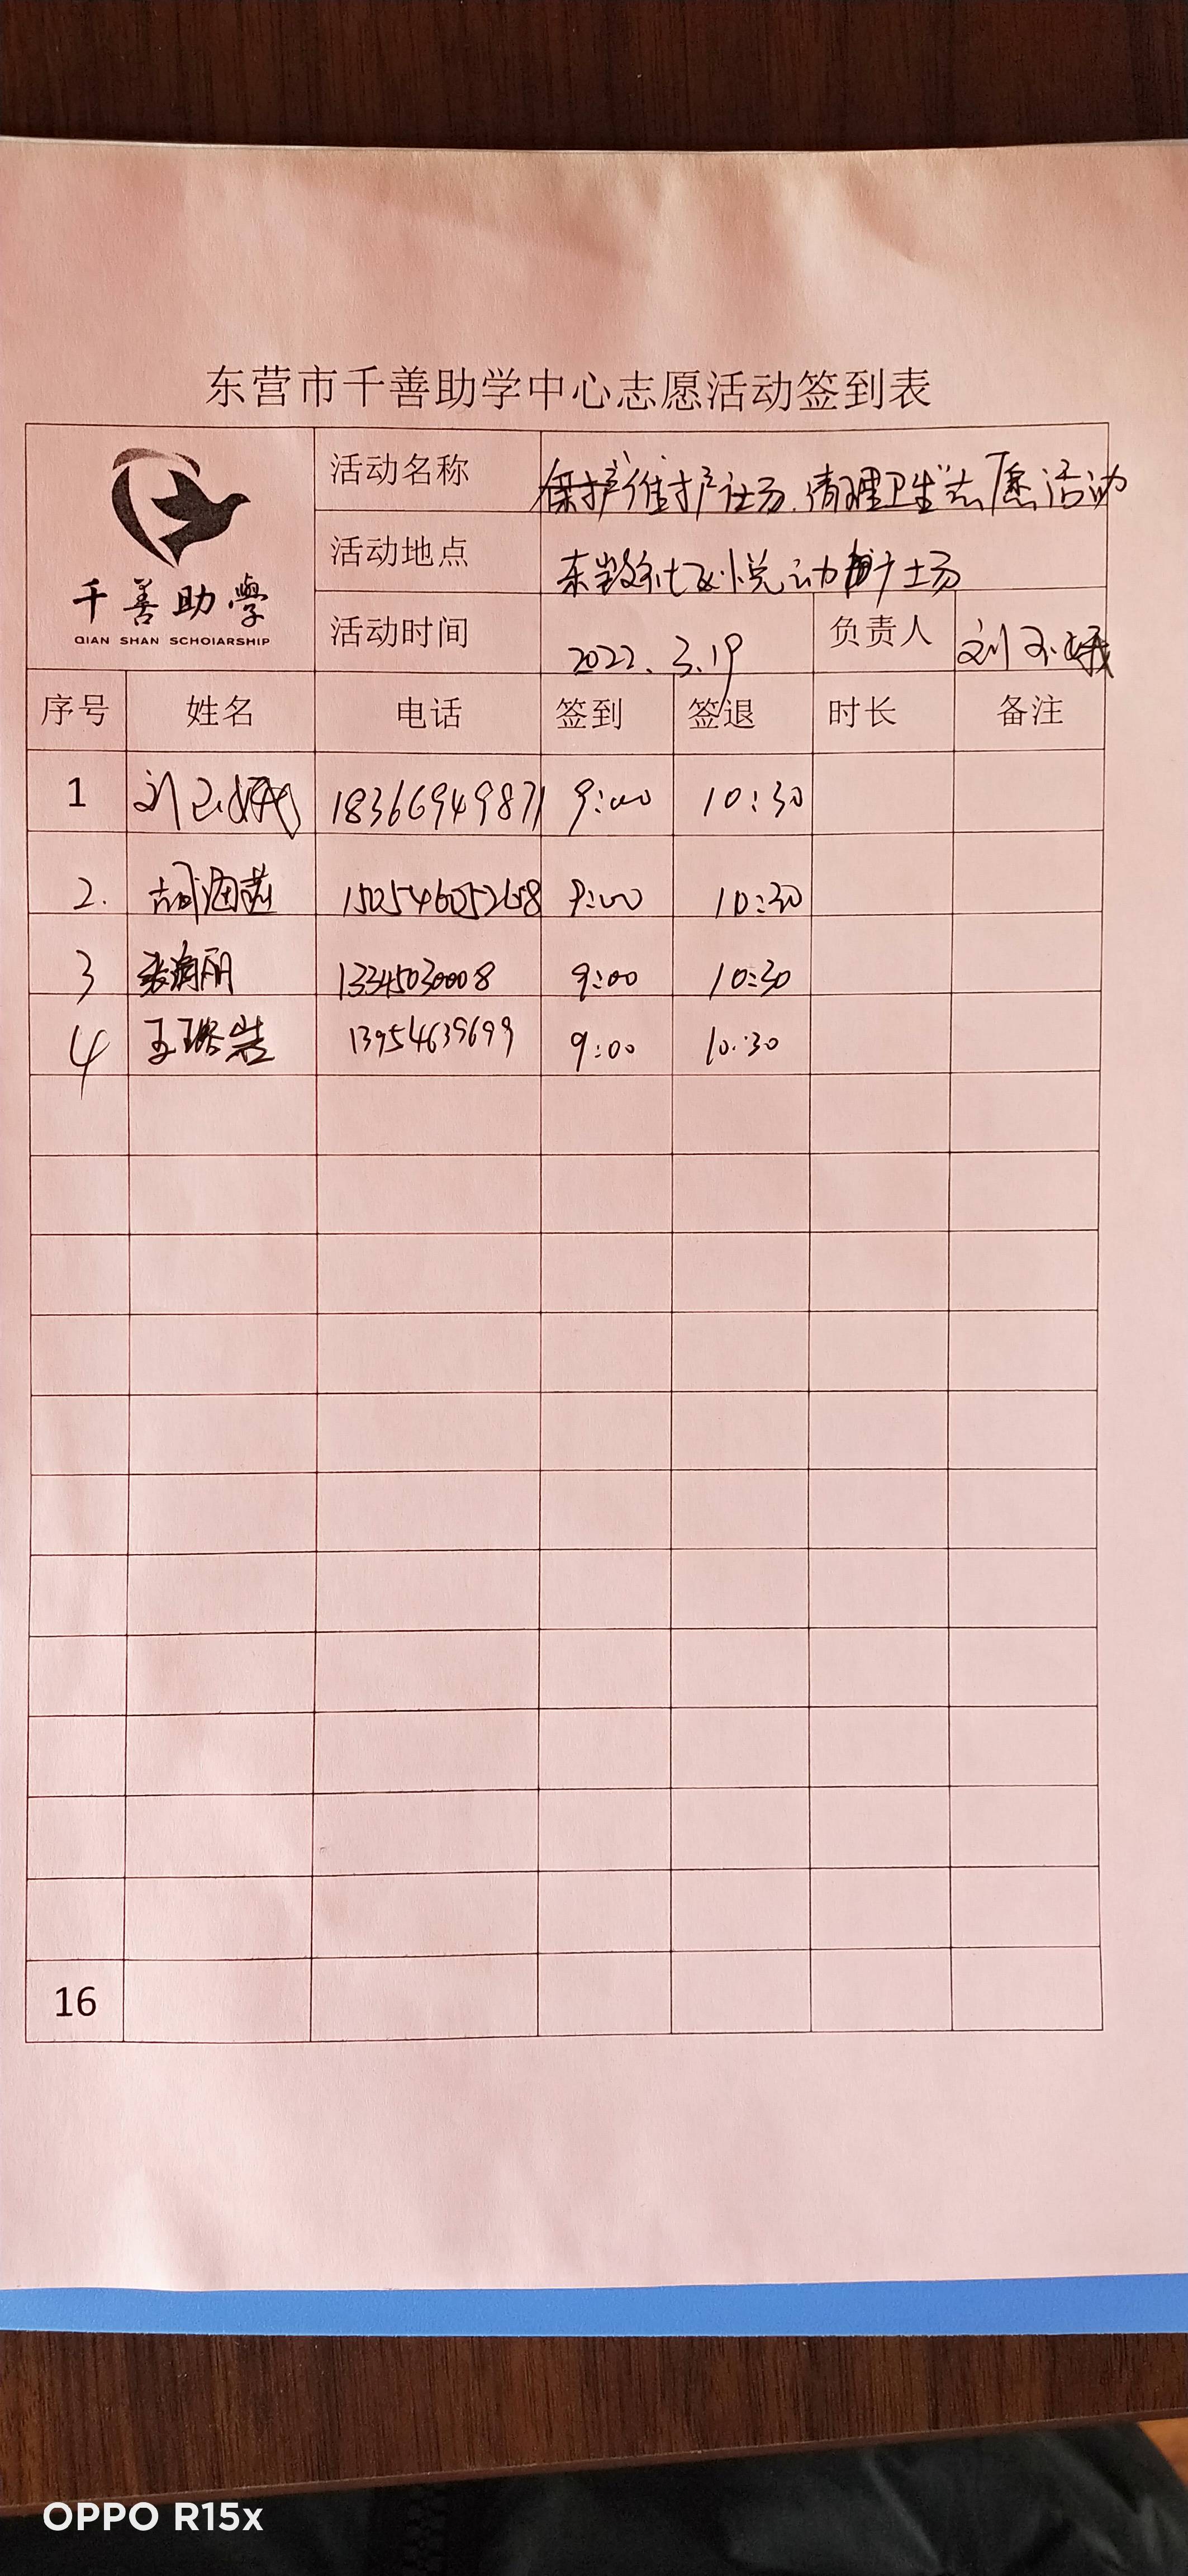 东营市千善助学中心志愿活动签到表
千善助學
QIAN SHAN SCHOIARSHIP
活动名称 "维护社区、清理卫生"志愿活动
活动地点 悦动广场
活动时间 2022.3.19 负责人 刘玉娥
序号 姓名 电话 签到 签退 时长 备注
1 刘玉娥 18366949871 9:00 10:30
2. 9:00 10:30
3 13345030008 9:00 10:30
4 13954639699 9:00 10:30
16
OPPO R15x